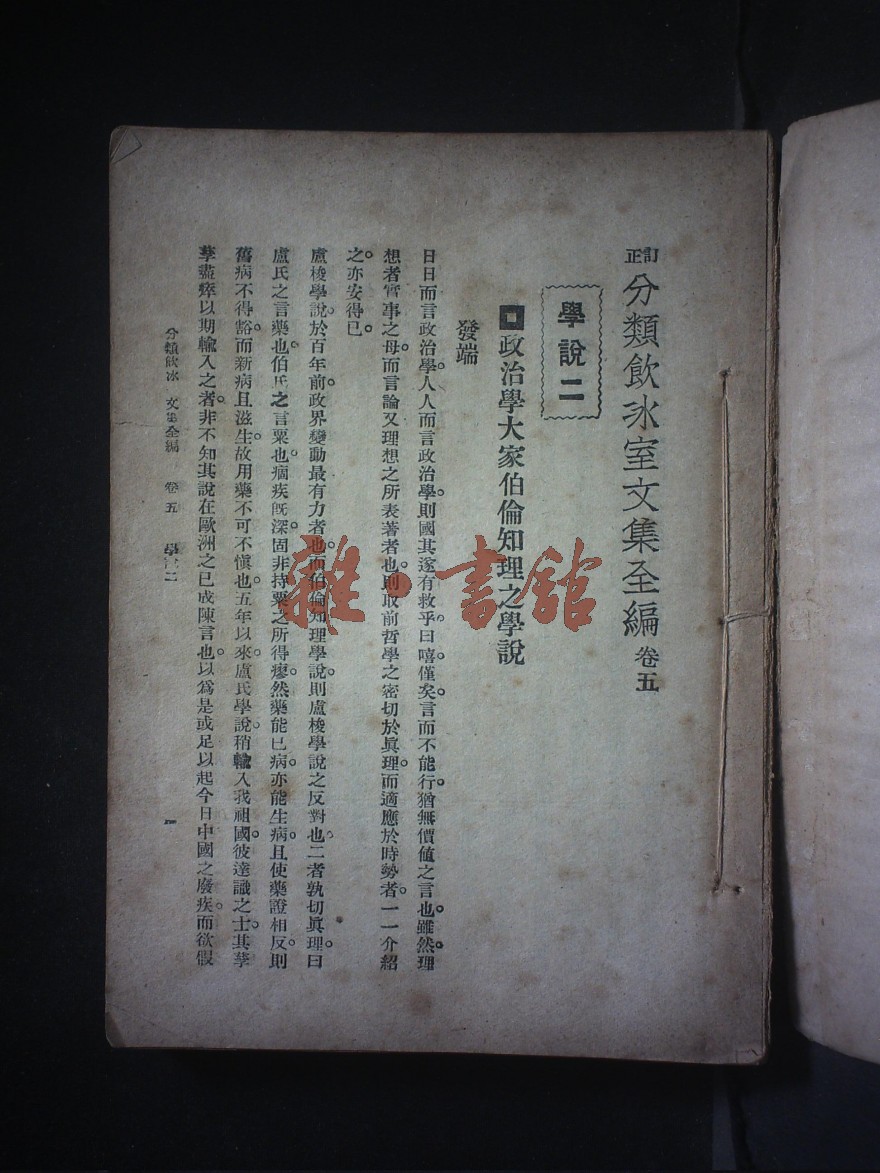 訂正分類飲冰室文集全編 卷五
學說二
政治學大家伯倫知理之學說
發端
日日而言政治學。人人而言政治學。則國其遂有救乎。曰嘻。僅矣。言而不能行。猶無價値之言也。雖然。理
想者實事之母。而言論又理想之所表著者也。則取前哲學之密切於眞理。而適應於時勢者。一一介紹
之。亦安得已。
盧梭學說。於百年前。政界變動最有力者也。而伯倫知理學說。則盧梭學說之反對也。二者孰切眞理。曰
盧氏之言藥也。伯氏之言粟也。痼疾旣深。固非持粟之所得瘳。然藥能已病。亦能生病。且使藥證相反。則
舊病不得豁。而新病且滋生。故用藥不可不愼也。五年以來。盧氏學說。稍輸入我祖國。彼達識之士。其孳
孳盡瘁以期輸入之者。非不知其說在歐洲之已成陳言也。以爲是或足以起今日中國之廢疾。而欲假
分類飲冰 文集全編 卷五 學說二
一
雜·書館